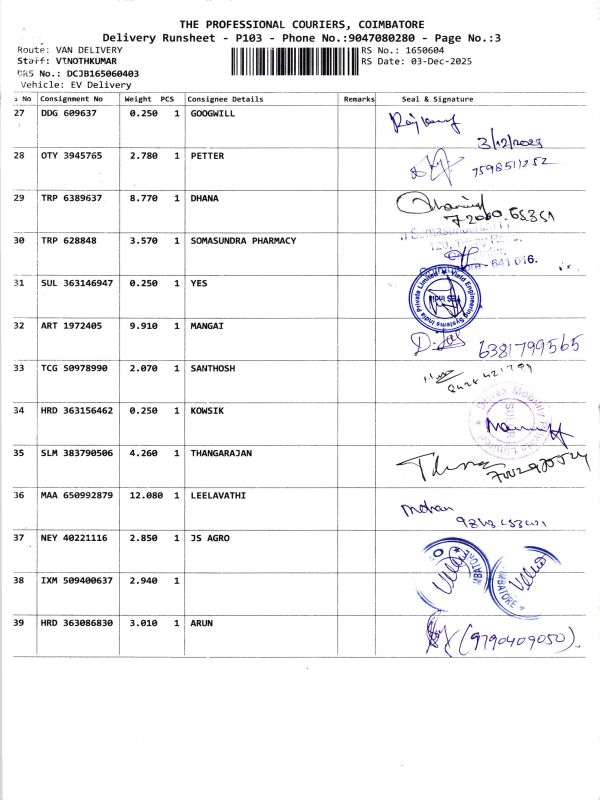 THE PROFESSIONAL COURIERS, COIMBATORE
Delivery Runsheet - P103 - Phone No.:9047080280 - Page No.:3
Route: VAN DELIVERY RS No.: 1650604
Staff: VINOTHKUMAR RS Date: 03-Dec-2025
DRS No.: DCJB165060403
Vehicle: EV Delivery
S No Consignment No Weight PCS Consignee Details Remarks Seal & Signature
27 DDG 609637 0.250 1 GOOGWILL
3/12/2025
28 OTY 3945765 2.780 1 PETTER
7598511252
29 TRP 6389637 8.770 1 DHANA
30 TRP 628848 3.570 1 SOMASUNDRA PHARMACY
641 016.
31 SUL 363146947 0.250 1 YES
Yield Engineering Systems India Private Limited
YES India
32 ART 1972405 9.910 1 MANGAI
6381799565
33 TCG 50978990 2.070 1 SANTHOSH
34 HRD 363156462 0.250 1 KOWSIK
35 SLM 383790506 4.260 1 THANGARAJAN
36 MAA 650992879 12.080 1 LEELAVATHI
mohan
37 NEY 40221116 2.850 1 JS AGRO
38 IXM 509400637 2.940 1
39 HRD 363086830 3.010 1 ARUN
(9790409050)